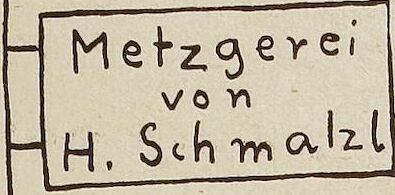 Metzgerei
von
H. Schmalzl